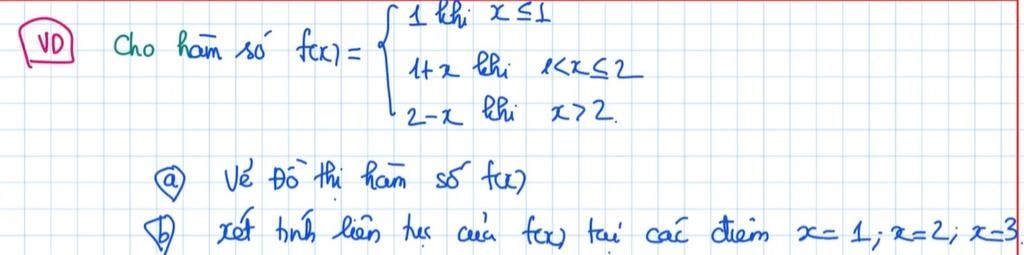 VD Cho hàm số f(x) = { 1 khi x ≤ 1
1+x khi 1<x≤2
2-x khi x>2.
a Vẽ Đồ thị hàm số f(x)
b xét tính liên tục của f(x) tại các điểm x=1; x=2; x=3